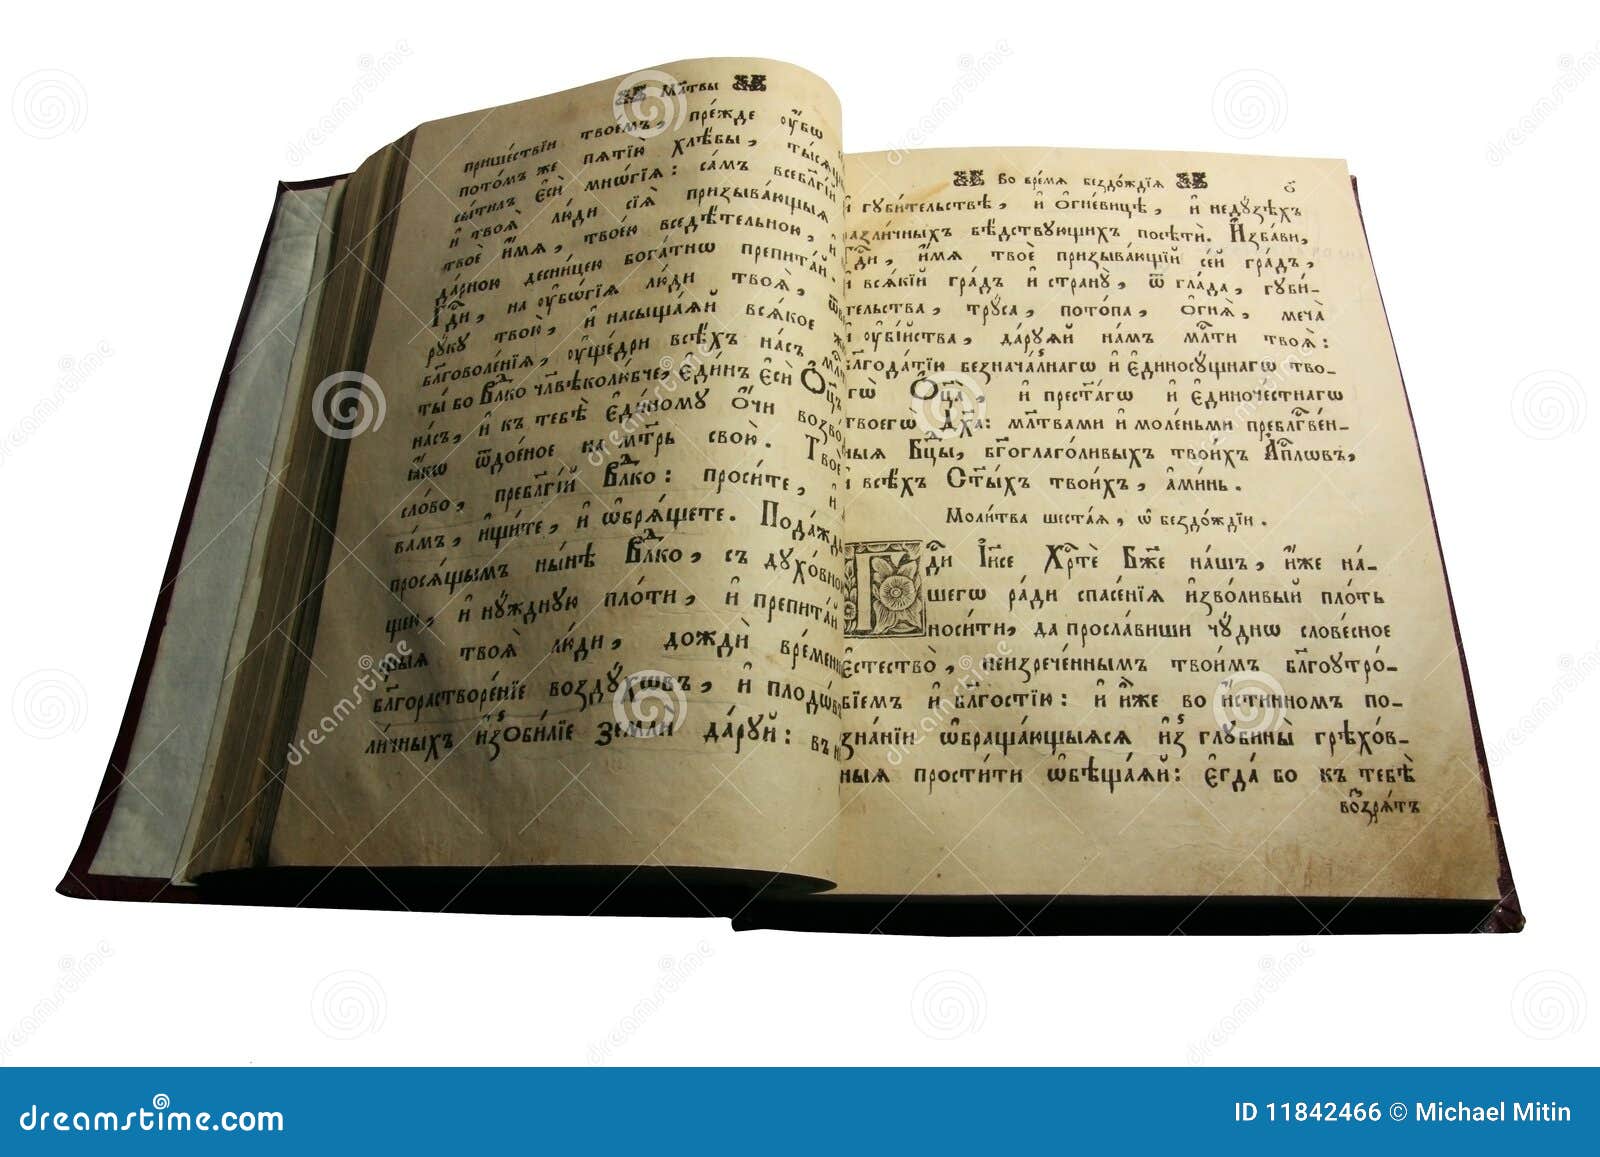 Мл҃твы
прише́ствїи твое́мъ, пре́жде ᲂу҆́бѡ
пото́мъ же пѧтїю̀ хлѣ́бы,
сы́тилъ є҆сѝ мнѡ́гїѧ: са́мъ всебл҃гі́й
и҆ твоѧ̑ лю́ди сїѧ̑ призыва́ющыѧ
твоѐ и҆́мѧ, твое́ю вседѣ́телною, и҆
да́рною десни́цею бога́тнѡ препита́й.
Гдⷭ҇и, на ᲂу҆бѡ́гїѧ лю́ди твоѧ̑,
рꙋ́кꙋ твою̀, и҆ насыща́ѧй всѧ́кое
бл҃говоле́нїѧ, ᲂу҆ще́дри всѣ́хъ на́съ
ты́ бо влⷣко чл҃вѣколю́бче, є҆ди́нъ є҆сѝ Ѻ҆ц҃ъ
на́съ, и҆ къ тебѣ̀ є҆ди́номꙋ ѻ҆́чи
ꙗ҆́кѡ ѿдое́ное на мт҃рь свою̀. Твоѐ
сло́во, пребл҃гі́й влⷣко: проси́те, и҆
ва́мъ, и҆щи́те, и҆ ѡ҆брѧ́щете. Пода́ждь
просѧ́щымъ ны́нѣ влⷣко, съ дꙋхо́вною
щею, и҆ нꙋ́ждную пло́ти, и҆ препита́й
твоѧ̑ лю́ди, дожди̑ вре́менны
бл҃горастворе́нїе возду́хѡвъ, и҆ плодѡ́въ
ли́чныхъ и҆з̾ѻби́лїе землѝ да́рꙋй:
Во вре́мѧ бездо́ждїѧ о҃
и҆ гꙋби́тельствѣ, и҆ ѻ҆гневи́цѣ, и҆ недꙋ́зѣхъ
разли́чныхъ бѣ́дствꙋющихъ посѣтѝ. И҆зба́ви,
гдⷭ҇и, и҆́мѧ твоѐ призыва́ющїй се́й гра́дъ,
и҆ всѧ́кїй гра́дъ и҆ странꙋ̀, ѿ гла́да, гꙋби́-
тельства, трꙋ́са, пото́па, ѻ҆гнѧ̀, меча̀
и҆ ᲂу҆бі́йства, да́рꙋѧй на́мъ млⷭ҇ти твоѧ̑:
бл҃года́тїю безнача́лнагѡ и҆ є҆диносꙋ́щнагѡ тво-
егѡ̀ Ѻ҆ц҃а̀, и҆ прест҃а́гѡ и҆ є҆диноче́стнагѡ
твоегѡ̀ Дх҃а: мл҃твами и҆ моле́ньми пребл҃гослове́н-
ныѧ Бц҃ы, бг҃оглаго́ливыхъ твои́хъ А҆пⷭ҇лѡвъ,
и҆ всѣ́хъ Ст҃ы́хъ твои́хъ, а҆ми́нь.
Моли́тва шеста́ѧ, ѡ҆ бездо́ждїи.
Гдⷭ҇и І҆и҃се Хрⷭ҇тѐ Бж҃е на́шъ, и҆́же на́-
шегѡ ра́ди спасе́нїѧ и҆зво́ливый пло́ть
носи́ти, да просла́виши чꙋ́днѡ слове́сное
є҆стество̀, неизрече́ннымъ твои́мъ бл҃гоꙋтро́-
бїемъ и҆ бл҃гостїю: и҆ и҆̀же во и҆́стинномъ по-
зна́нїи ѡ҆браща́ющыѧсѧ и҆з̾ глꙋбины̀ грѣхо́в-
ныѧ прости́ти ѡ҆бѣща́ѧй: є҆гда́ бо къ тебѣ̀
возⸯзрѧ́тъ
dreamstime.com
ID 11842466 © Michael Mitin